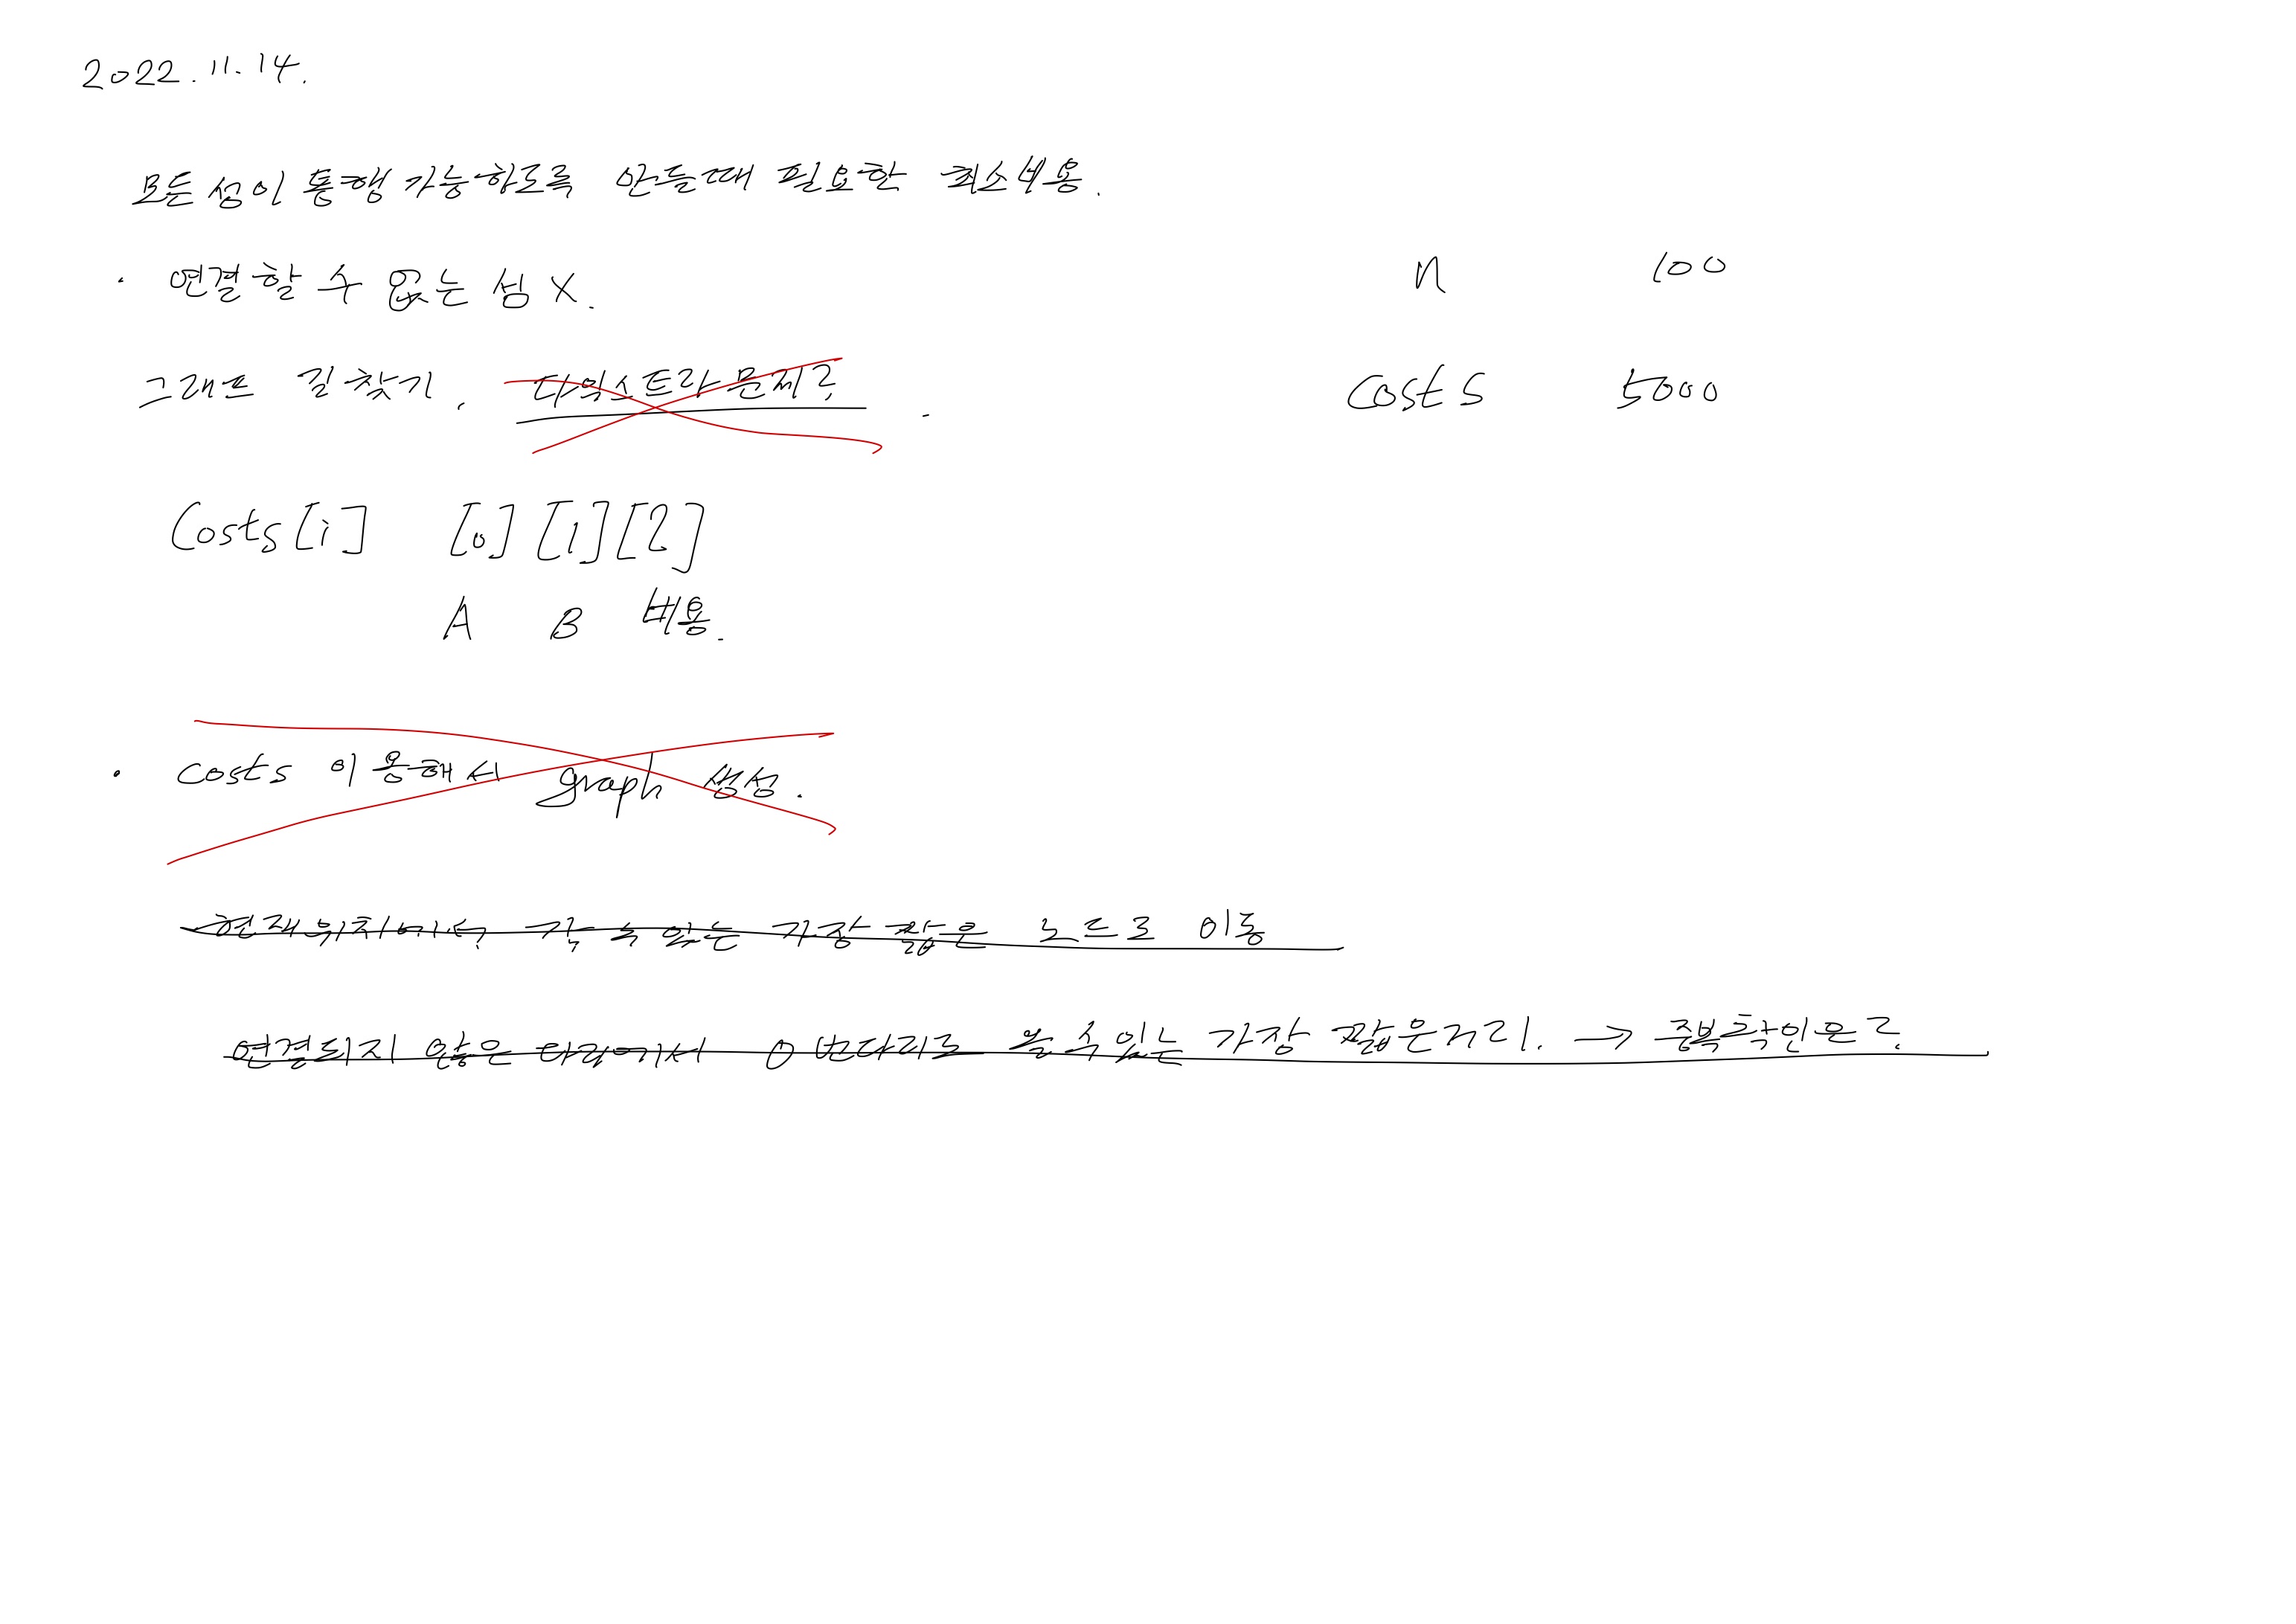 2022.11.14.
모든 섬이 통행 가능하도록 만들때 필요한 최소비용.
· 연결할 수 없는 섬 X.
n 100
그래프 길찾기. 다익스트라 문제? .
costs 5000
Costs[i] [0] [1] [2]
A B 비용.
· costs 이용해서 graph 생성.
현재위치에서 갈 수 있는 가장 짧은 노드로 이동
연결되지 않은 다리에서 0번다리로 올 수 있는 가장 짧은거리. → 중복확인은?